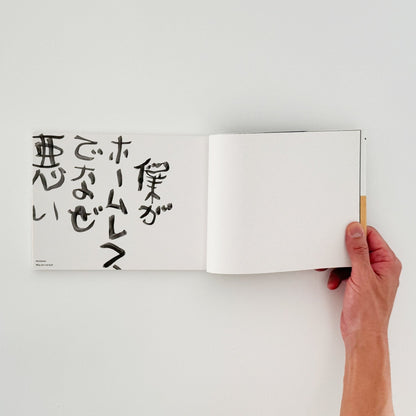 僕が
ホームレス
でなぜ
悪い